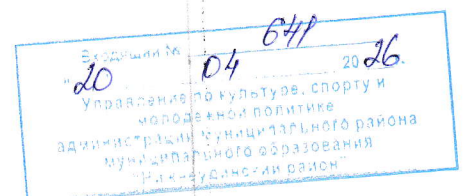 Входящий № 641
"20 04 2026.
Управление по культуре, спорту и
молодежной политике
администрации муниципального района
муниципального образования
"Нижнеудинский район"